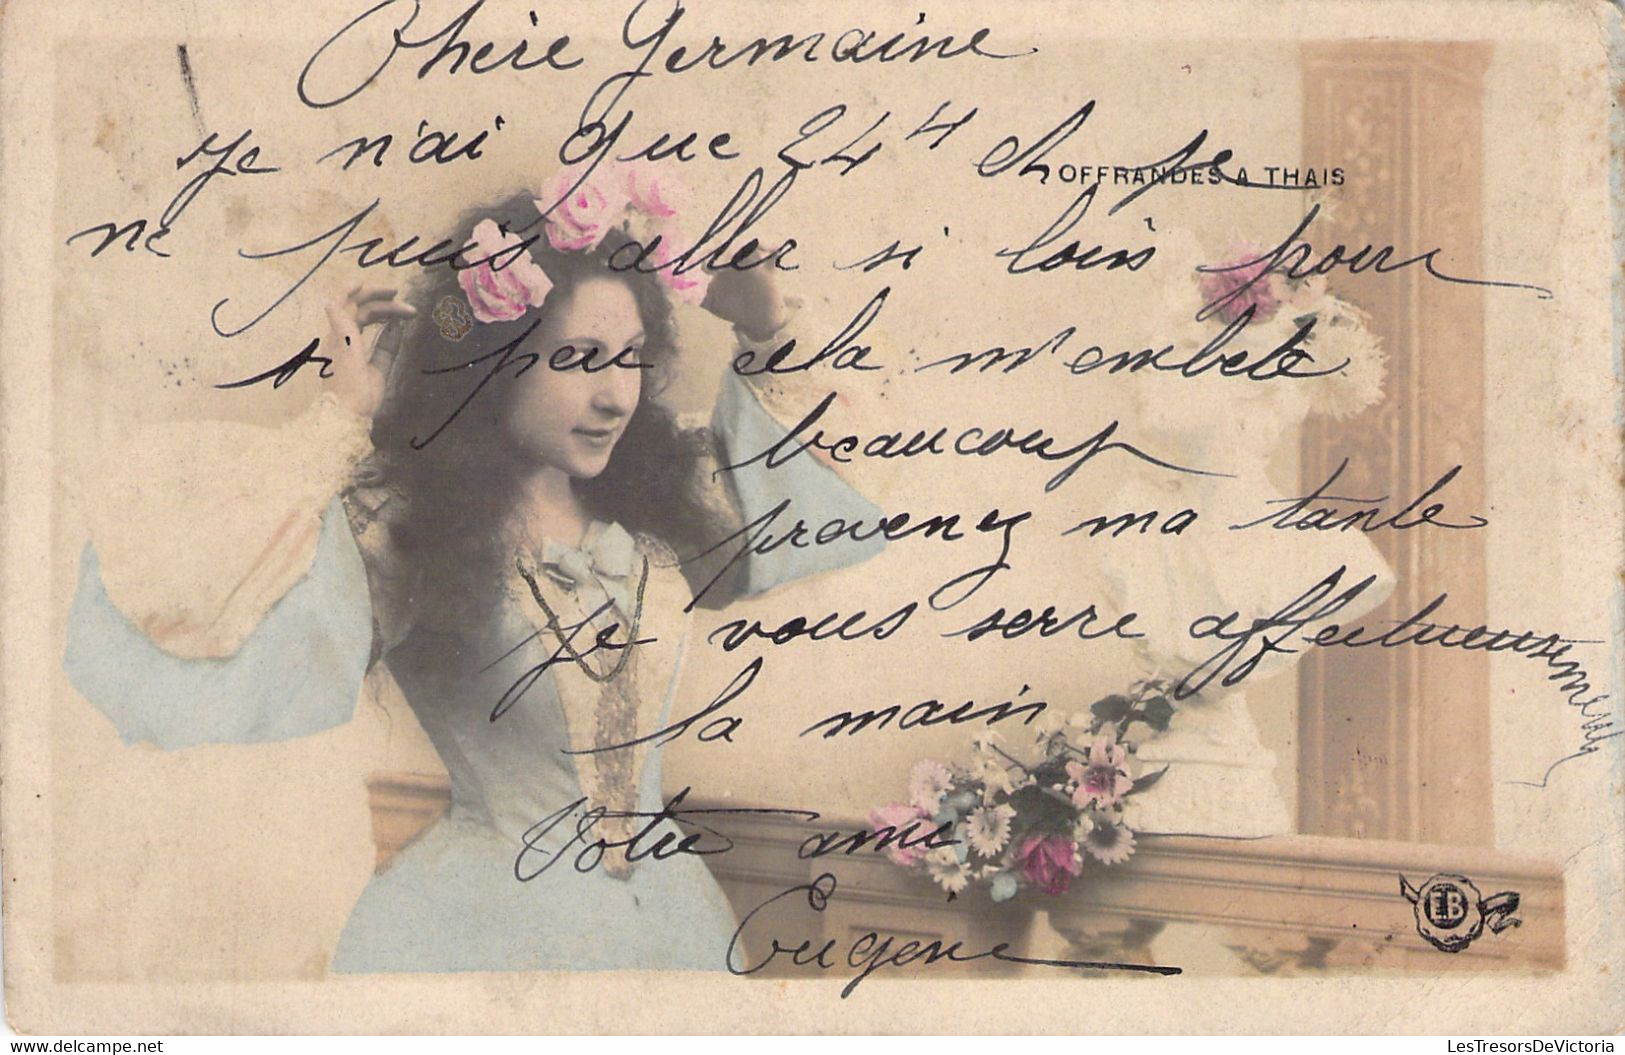 Chère Germaine
je n'ai que 24 H ch je
OFFRANDES A THAIS
ne puis aller si loin pour
si peu cela m'embete
beaucoup
prevenez ma tante
je vous serre affectueusement
la main
Votre ami
Eugene
EB
LesTresorsDeVictoria
www.delcampe.net